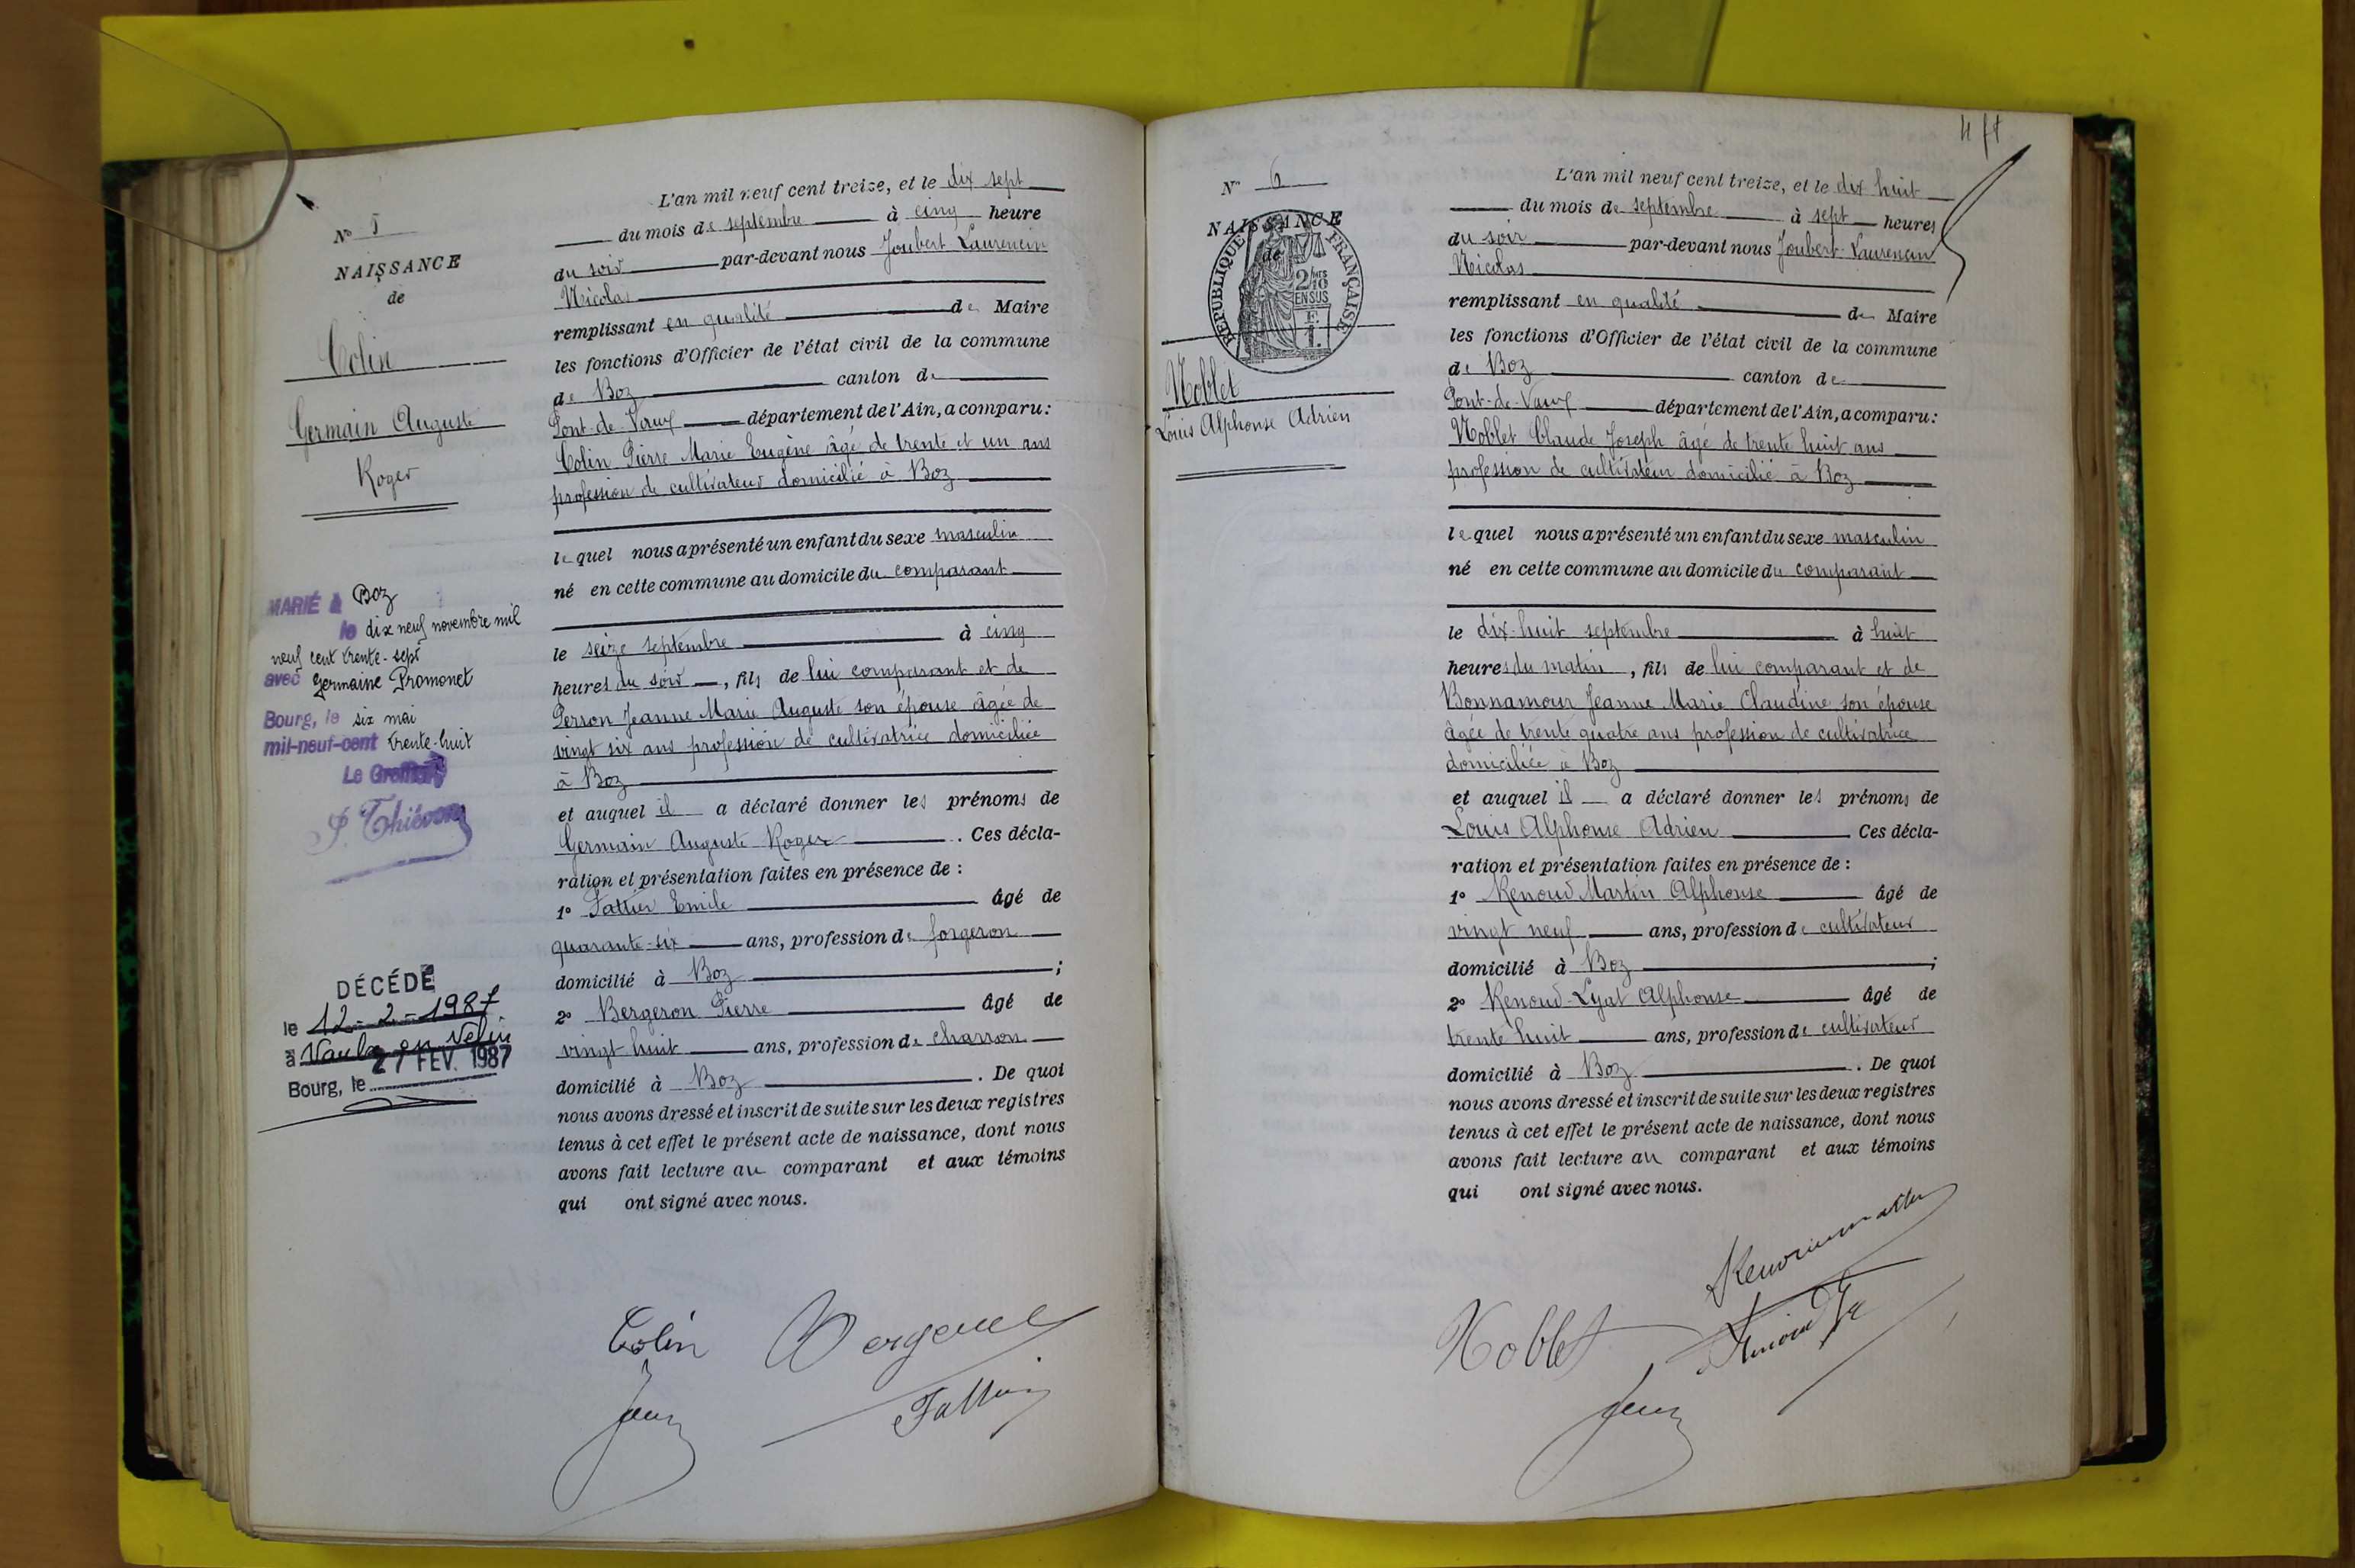 N° 5
NAISSANCE
de
Colin
Germain Auguste
Roger
MARIÉ à Boz
le dix neuf novembre mil
neuf cent trente-sept
avec Germaine Promonet
Bourg, le six mai
mil-neuf-cent trente-huit
Le Greffier
DÉCÉDÉ
le 12-2-1987
à Vaulx en Velin
27 FEV. 1987
Bourg, le
L'an mil neuf cent treize, et le dix sept
du mois de septembre à cinq heure
du soir par-devant nous Joubert Laurencin
Nicolas
remplissant en qualité de Maire
les fonctions d'Officier de l'état civil de la commune
de Boz canton de
Pont-de-Vaux département de l'Ain, a comparu:
Colin Pierre Marie Eugène âgé de trente et un ans
profession de cultivateur domicilié à Boz
lequel nous a présenté un enfant du sexe masculin
né en cette commune au domicile du comparant
le seize septembre à cinq
heures du soir, fils de lui comparant et de
Perron Jeanne Marie Auguste son épouse âgée de
vingt six ans profession de cultivatrice domiciliée
à Boz
et auquel il a déclaré donner les prénoms de
Germain Auguste Roger. Ces décla-
ration et présentation faites en présence de :
1° Fattier Emile âgé de
quarante-six ans, profession de forgeron
domicilié à Boz;
2° Bergeron Pierre âgé de
vingt huit ans, profession de charron
domicilié à Boz. De quoi
nous avons dressé et inscrit de suite sur les deux registres
tenus à cet effet le présent acte de naissance, dont nous
avons fait lecture au comparant et aux témoins
qui ont signé avec nous.
Colin
N° 6
NAISSANCE
de
RÉPUBLIQUE FRANÇAISE
2/10
EN SUS
Noblet
Louis Alphonse Adrien
L'an mil neuf cent treize, et le dix huit
du mois de septembre à sept heures
du soir par-devant nous Joubert-Laurencin
Nicolas
remplissant en qualité de Maire
les fonctions d'Officier de l'état civil de la commune
de Boz canton de
Pont-de-Vaux département de l'Ain, a comparu:
Noblet Claude Joseph âgé de trente huit ans
profession de cultivateur domicilié à Boz
lequel nous a présenté un enfant du sexe masculin
né en cette commune au domicile du comparant
le dix-huit septembre à huit
heures du matin, fils de lui comparant et de
Bonnamour Jeanne Marie Claudine son épouse
âgée de trente quatre ans profession de cultivatrice
domiciliée à Boz
et auquel il a déclaré donner les prénoms de
Louis Alphonse Adrien Ces décla-
ration et présentation faites en présence de :
1° Renoud Martin Alphonse âgé de
vingt neuf ans, profession de cultivateur
domicilié à Boz;
2° Renoud-Lyat Alphonse âgé de
trente huit ans, profession de cultivateur
domicilié à Boz. De quoi
nous avons dressé et inscrit de suite sur les deux registres
tenus à cet effet le présent acte de naissance, dont nous
avons fait lecture au comparant et aux témoins
qui ont signé avec nous.
Noblet